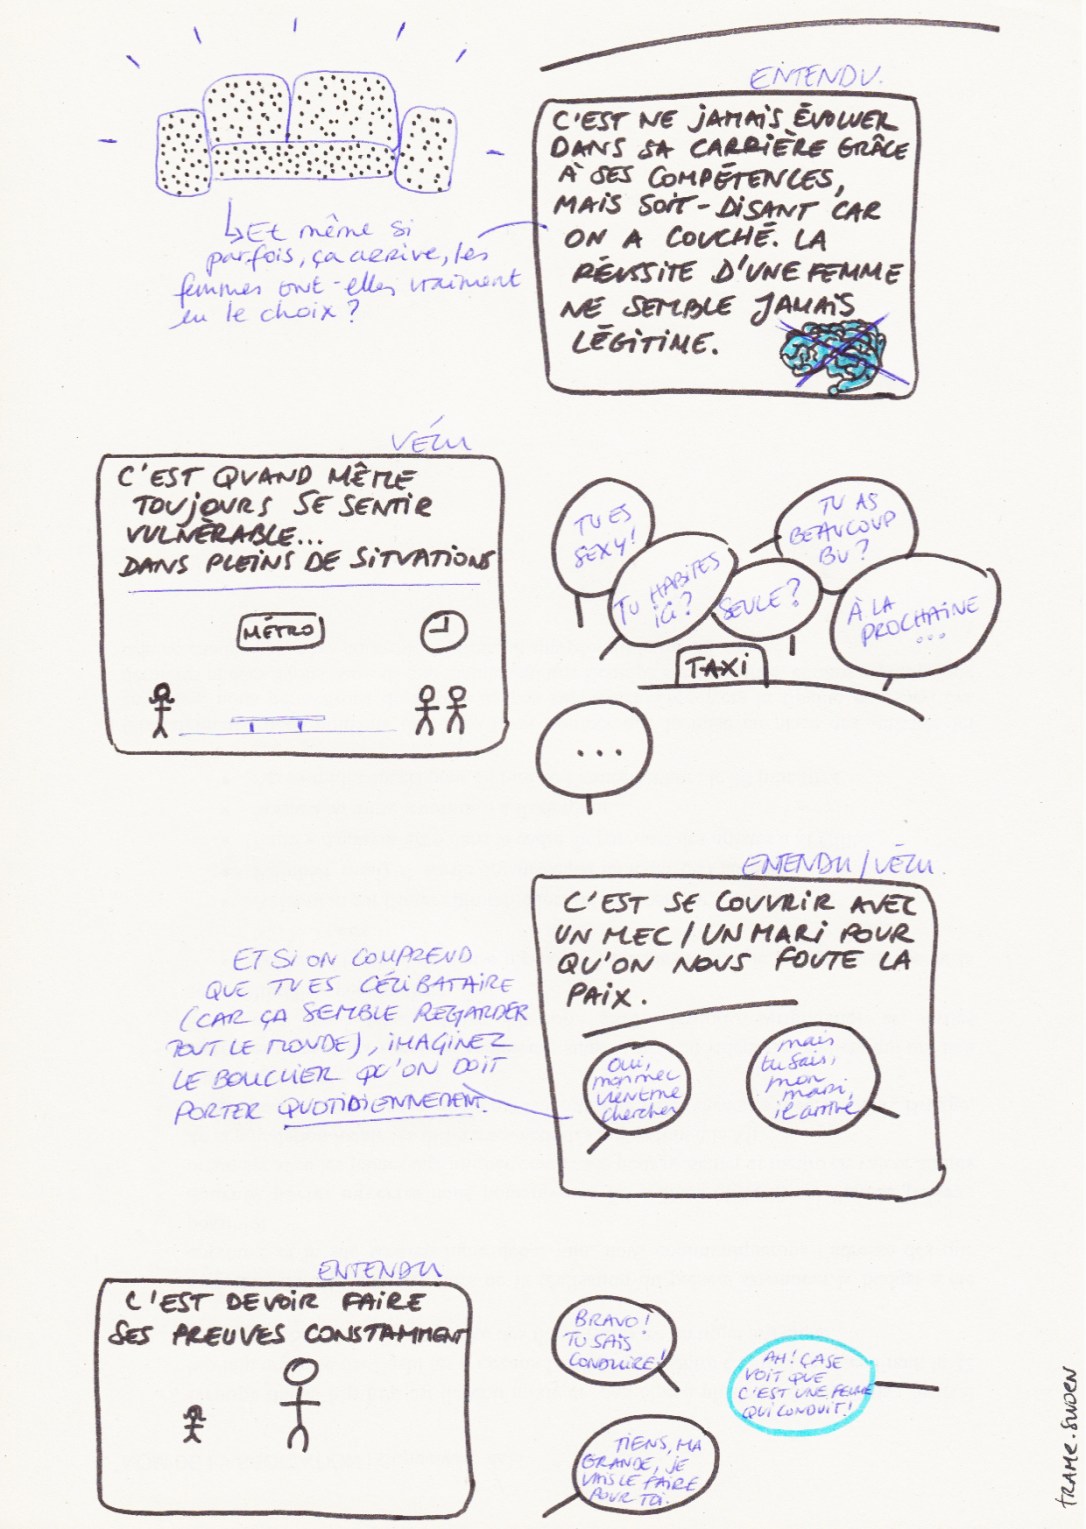 ENTENDU.
C'EST NE JAMAIS ÉVOLUER
DANS SA CARRIÈRE GRÂCE
À SES COMPÉTENCES,
MAIS SOIT-DISANT CAR
ON A COUCHÉ. LA
RÉUSSITE D'UNE FEMME
NE SEMBLE JAMAIS
LÉGITIME.
Et même si
parfois, ça arrive, les
femmes ont-elles vraiment
eu le choix ?
VÉCU
C'EST QUAND MÊME
TOUJOURS SE SENTIR
VULNÉRABLE...
DANS PLEINS DE SITUATIONS
MÉTRO
TU ES
SEXY!
TU HABITES
ICI?
SEULE?
TU AS
BEAUCOUP
BU?
À LA
PROCHAINE
...
TAXI
...
ENTENDU/VÉCU
C'EST SE COUVRIR AVEC
UN MEC / UN MARI POUR
QU'ON NOUS FOUTE LA
PAIX.
oui,
mon mec
vient me
chercher
mais
tu sais,
mon
mari,
il arrive
ET SI ON COMPREND
QUE TU ES CÉLIBATAIRE
(CAR ÇA SEMBLE REGARDER
TOUT LE MONDE), IMAGINEZ
LE BOUCLIER QU'ON DOIT
PORTER QUOTIDIENNEMENT.
ENTENDU
C'EST DEVOIR FAIRE
SES PREUVES CONSTAMMENT
BRAVO!
TU SAIS
CONDUIRE!
AH! ÇA SE
VOIT QUE
C'EST UNE FEMME
QUI CONDUIT!
TIENS, MA
GRANDE, JE
VAIS LE FAIRE
POUR TOI.